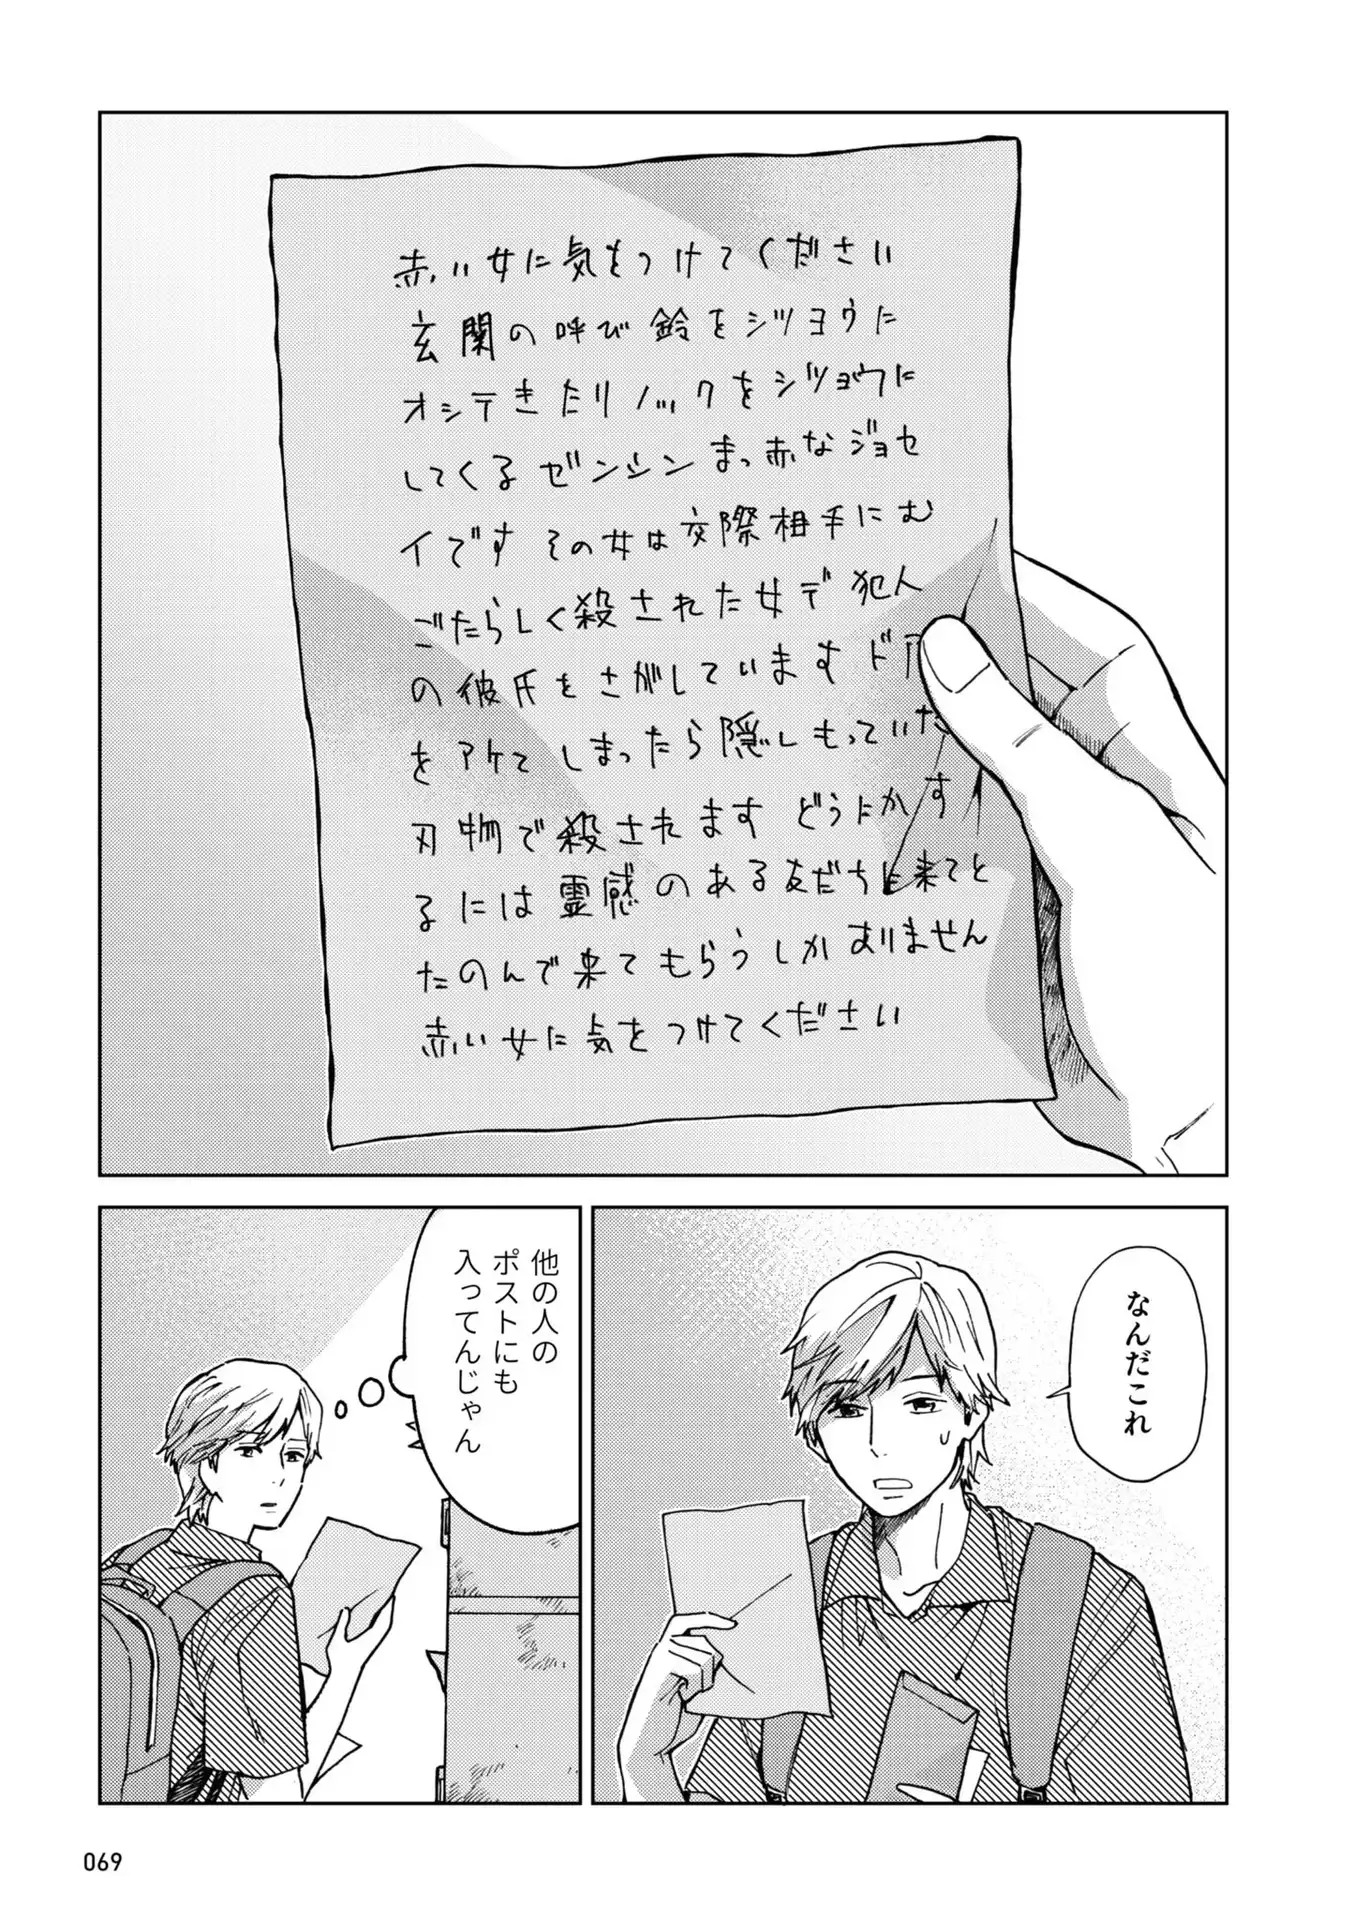 赤い女に気をつけてください
玄関の呼び鈴をシツヨウに
オシテきたりノックをシツヨウに
してくるゼンシンまっ赤なジョセ
イです その女は交際相手にむ
ごたらしく殺された女デ 犯人
の彼氏をさがしています ドア
をアケてしまったら隠しもっていた
刃物で殺されます どうにかす
るには霊感のある友だちに来てと
たのんで来てもらうしかありません
赤い女に気をつけてください
なんだこれ
他の人の
ポストにも
入ってんじゃん
069